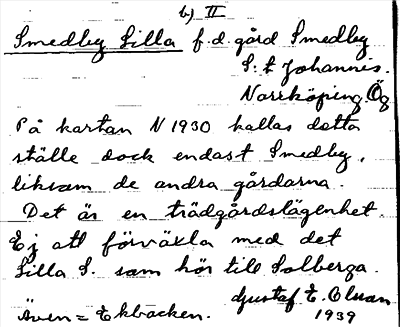 b) II
Smedby Lilla f.d. gård Smedby
S:t Johannis.
Norrköping. Ög
På kartan N 1930 kallas detta
ställe dock endast Smedby,
liksom de andra gårdarna.
Det är en trädgårdslägenhet.
Ej att förväxla med det
Lilla S. som hör till Solberga.
Gustaf E. Olsson
Även = Ekbacken. 1939